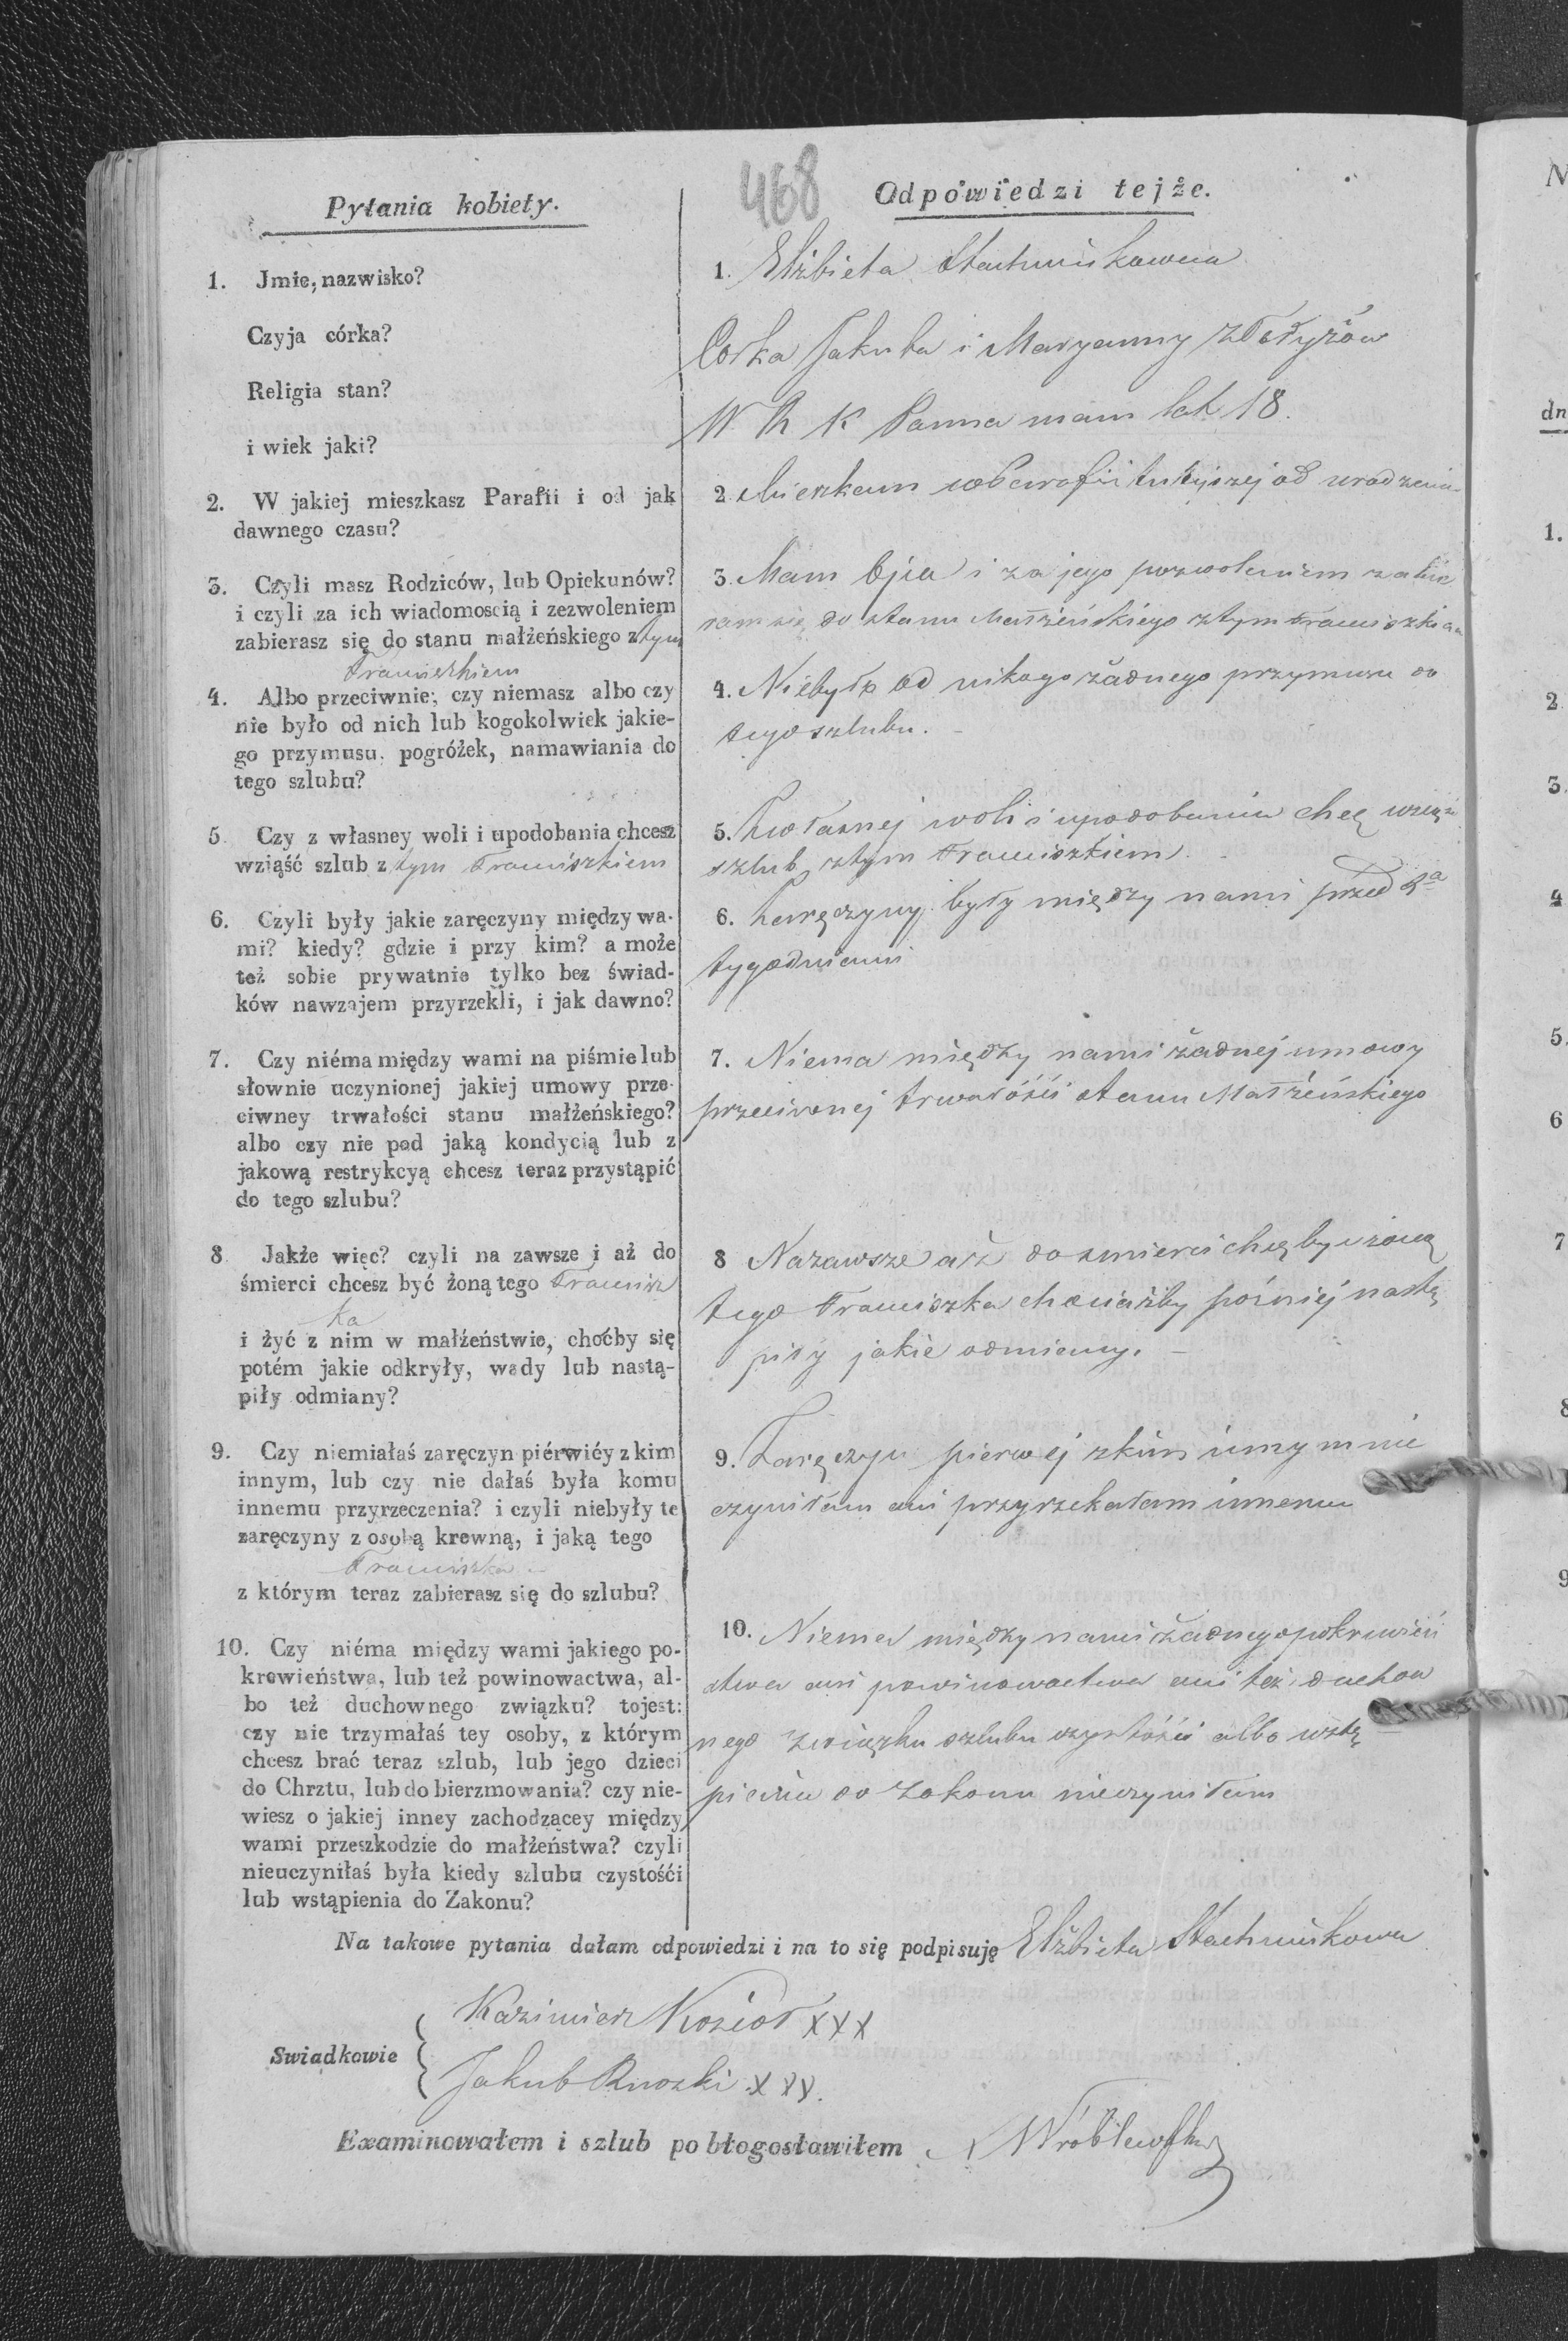 468
Pytania kobiety.
1. Jmie, nazwisko?
Czyja córka?
Religia stan?
i wiek jaki?
2. W jakiej mieszkasz Parafii i od jak
dawnego czasu?
3. Czyli masz Rodziców, lub Opiekunów?
i czyli za ich wiadomoscią i zezwoleniem
zabierasz się do stanu małżeńskiego z tym
Franciszkiem
4. Albo przeciwnie; czy niemasz albo czy
nie było od nich lub kogokolwiek jakie-
go przymusu, pogróżek, namawiania do
tego szlubu?
5 Czy z własney woli i upodobania chcesz
wziąść szlub z tym Franciszkiem
6. Czyli były jakie zaręczyny między wa-
mi? kiedy? gdzie i przy kim? a może
też sobie prywatnie tylko bez świad-
ków nawzajem przyrzekli, i jak dawno?
7. Czy niéma między wami na piśmie lub
słownie uczynionej jakiej umowy prze-
ciwney trwałości stanu małżeńskiego?
albo czy nie pod jaką kondycią lub z
jakową restrykcyą chcesz teraz przystąpić
do tego szlubu?
8 Jakże więc? czyli na zawsze i aż do
śmierci chcesz być żoną tego Francisz
ka
i żyć z nim w małżeństwie, choćby się
potém jakie odkryły, wady lub nastą-
piły odmiany?
9. Czy niemiałaś zaręczyn piérwiéy z kim
innym, lub czy nie dałaś była komu
innemu przyrzeczenia? i czyli niebyły te
zaręczyny z osobą krewną, i jaką tego
Franciszka
z którym teraz zabierasz się do szlubu?
10. Czy niéma między wami jakiego po-
krewieństwa, lub też powinowactwa, al-
bo też duchownego związku? tojest:
czy nie trzymałaś tey osoby, z którym
chcesz brać teraz szlub, lub jego dzieci
do Chrztu, lub do bierzmowania? czy nie-
wiesz o jakiej inney zachodzącey między
wami przeszkodzie do małżeństwa? czyli
nieuczyniłaś była kiedy szlubu czystośći
lub wstąpienia do Zakonu?
Odpowiedzi tejże.
1. Elżbieta Stachnikowna
Corka Jakuba i Maryanny
W R K Panna mam lat 18.
2. Mieszkam w Parafii tutejszej od urodzenia
3. Mam Ojca i za jego pozwoleniem zabie
ram się do stanu Małżeńskiego z tym Franciszkiem
4. Niebyło od nikogo żadnego przymusu do
tego szlubu. –
5. Z własnej woli i upodobania chcę wziąść
szlub z tym Franciszkiem.
6. Zaręczyny były między nami przed 2a
tygodniami
7. Niema między nami żadnej umowy
przeciwnej trwałości stanu Małżeńskiego
8 Nazawsze aż do smierci chcę być żoną
tego Franciszka chociażby poźniéj nastą
piły jakie odmiany. –
9. Zaręczyn pierwej z kim innym nie
czyniłam ani przyrzekałam innemu
10. Niema między nami żadnego pokrewień
stwa ani powinowactwa ani też duchow
nego związku szlubu czystości albo wstą
pienia do Zakonu nieczyniłam
Na takowe pytania dałam odpowiedzi i na to się podpisuję Elżbieta Stachnikowna
Kazimierz Kozioł XXX
Swiadkowie
Jakub XXX.
Examinowałem i szlub pobłogosławiłem Wróblewski
N
dn
1.
2
3.
4
5.
6
7
8
9